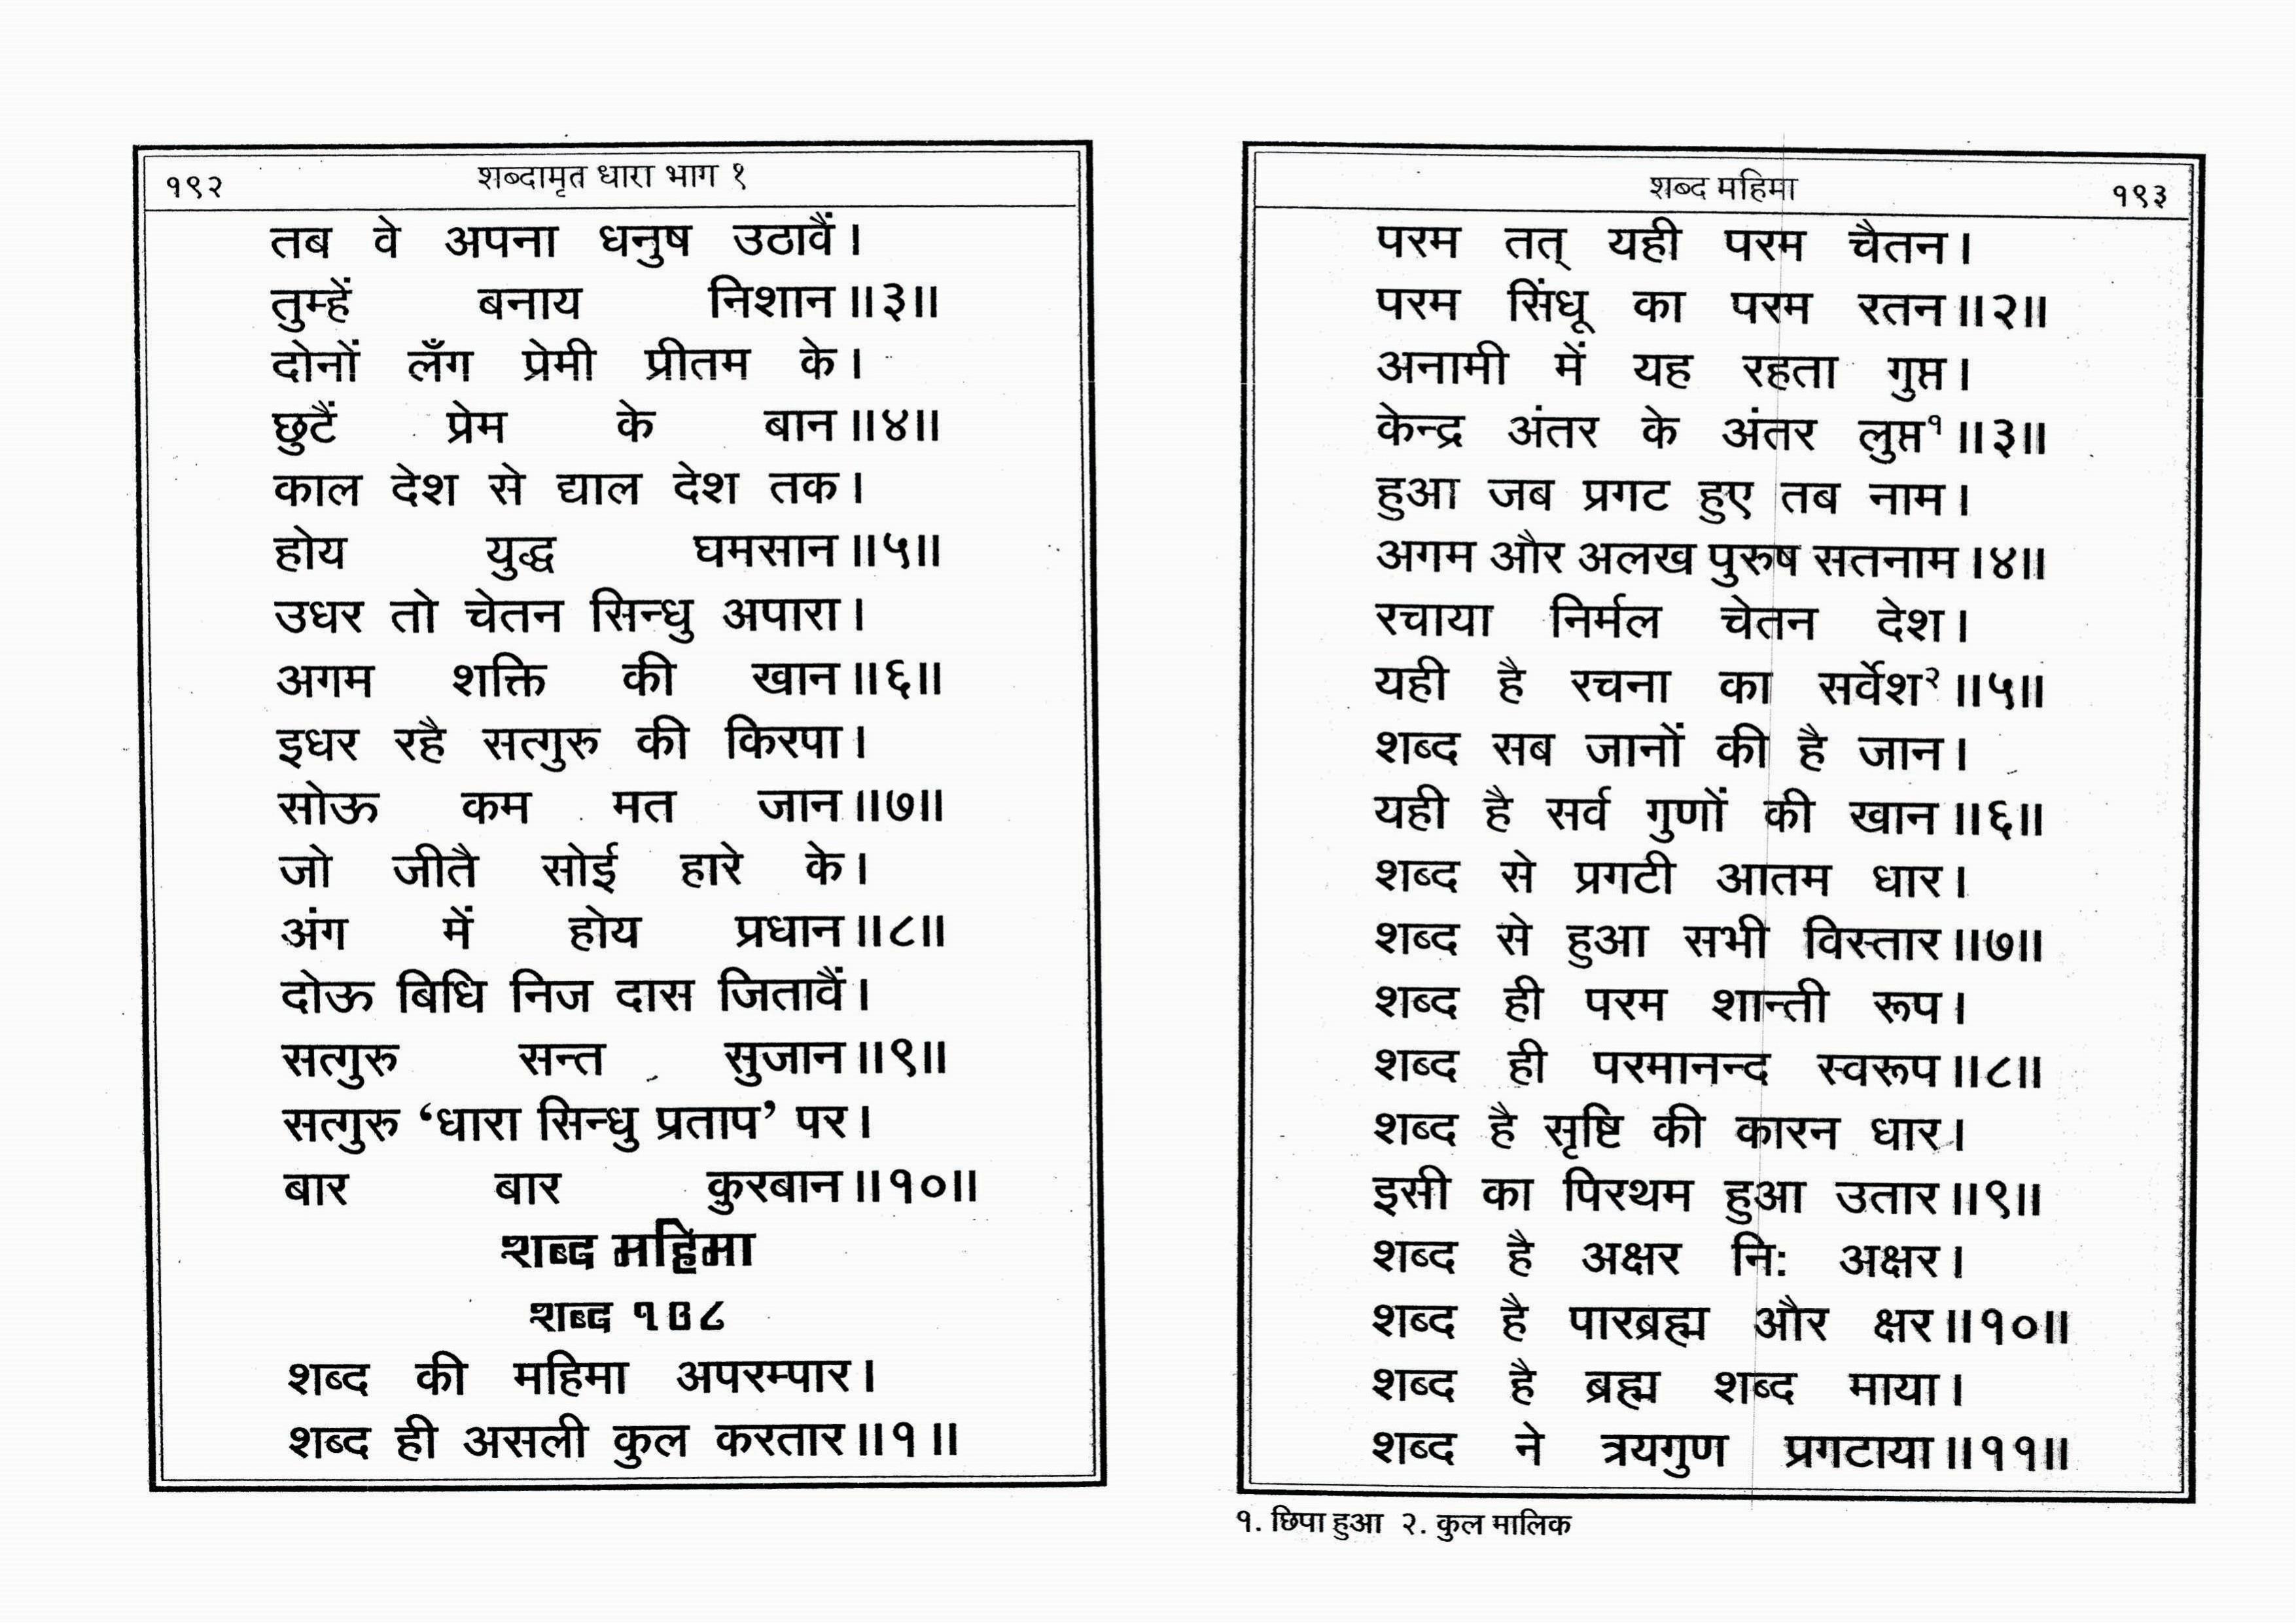 १९२ शब्दामृत धारा भाग १
तब वे अपना धनुष उठावैं।
तुम्हें बनाय निशान॥३॥
दोनों लँग प्रेमी प्रीतम के।
छुटैं प्रेम के बान॥४॥
काल देश से द्याल देश तक।
होय युद्ध घमसान॥५॥
उधर तो चेतन सिन्धु अपारा।
अगम शक्ति की खान॥६॥
इधर रहै सत्गुरु की किरपा।
सोऊ कम मत जान॥७॥
जो जीतै सोई हारे के।
अंग में होय प्रधान॥८॥
दोऊ बिधि निज दास जितावैं।
सत्गुरु सन्त सुजान॥९॥
सत्गुरु ‘धारा सिन्धु प्रताप’ पर।
बार बार कुरबान॥१०॥
शब्द महिमा
शब्द १३८
शब्द की महिमा अपरम्पार।
शब्द ही असली कुल करतार॥१॥
शब्द महिमा १९३
परम तत् यही परम चैतन।
परम सिंधू का परम रतन॥२॥
अनामी में यह रहता गुप्त।
केन्द्र अंतर के अंतर लुप्त१॥३॥
हुआ जब प्रगट हुए तब नाम।
अगम और अलख पुरुष सतनाम।४॥
रचाया निर्मल चेतन देश।
यही है रचना का सर्वेश२॥५॥
शब्द सब जानों की है जान।
यही है सर्व गुणों की खान॥६॥
शब्द से प्रगटी आतम धार।
शब्द से हुआ सभी विस्तार॥७॥
शब्द ही परम शान्ती रूप।
शब्द ही परमानन्द स्वरूप॥८॥
शब्द है सृष्टि की कारन धार।
इसी का पिरथम हुआ उतार॥९॥
शब्द है अक्षर नि: अक्षर।
शब्द है पारब्रह्म और क्षर॥१०॥
शब्द है ब्रह्म शब्द माया।
शब्द ने त्रयगुण प्रगटाया॥११॥
१. छिपा हुआ २. कुल मालिक